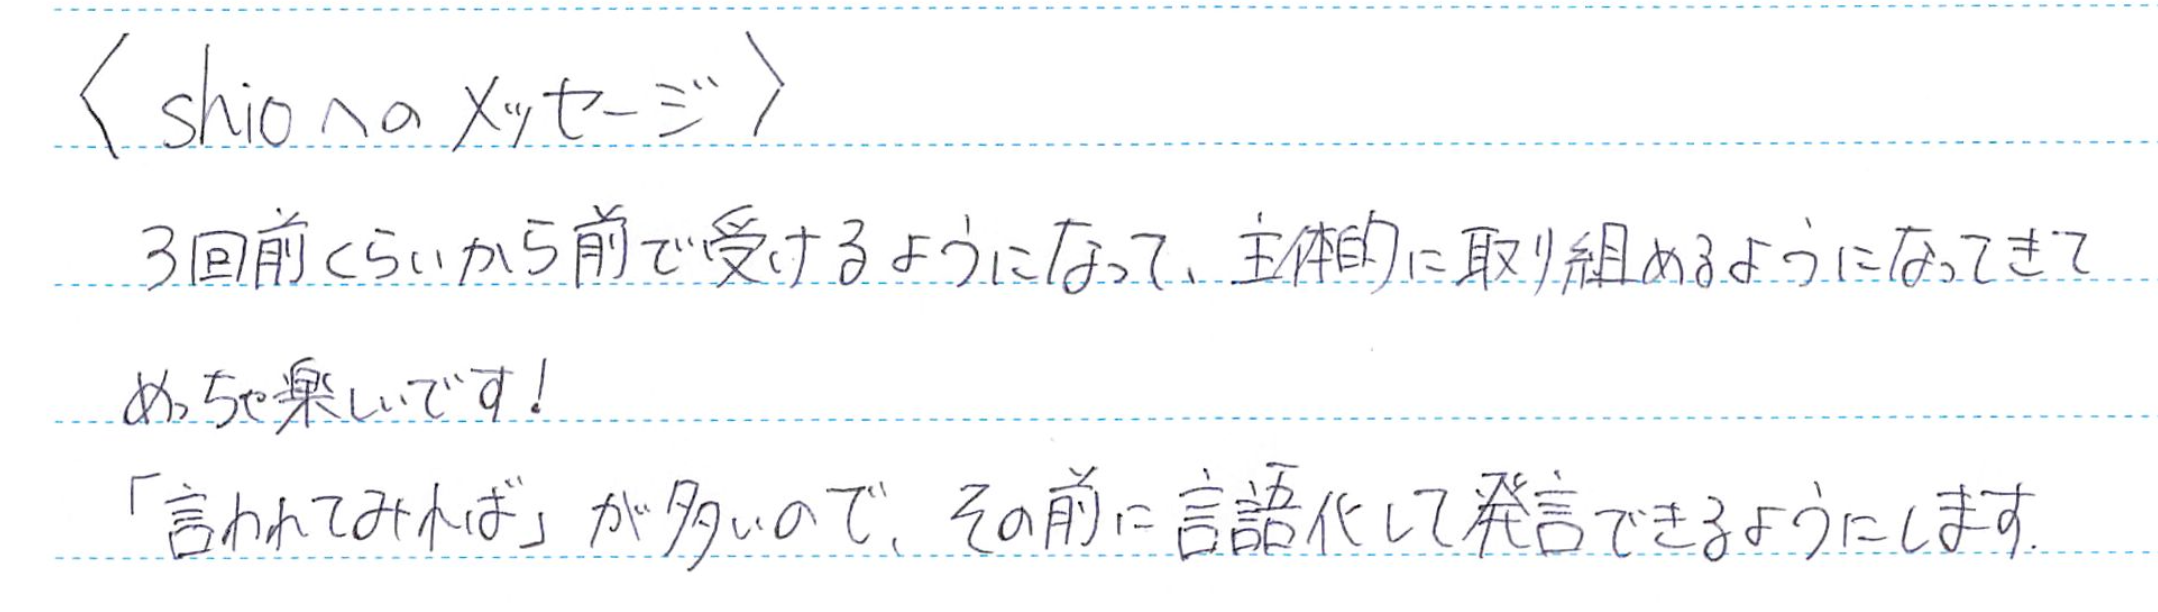 〈shioへのメッセージ〉
3回前くらいから前で受けるようになって、主体的に取り組めるようになってきて
めっちゃ楽しいです!
「言われてみれば」が多いので、その前に言語化して発言できるようにします.